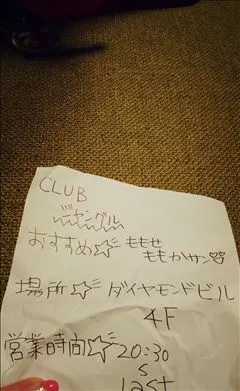 CLUB
ジャングル
おすすめ☆ももせ
ももかサン♡
場所☆ダイヤモンドビル
4F
営業時間☆20:30
S
last